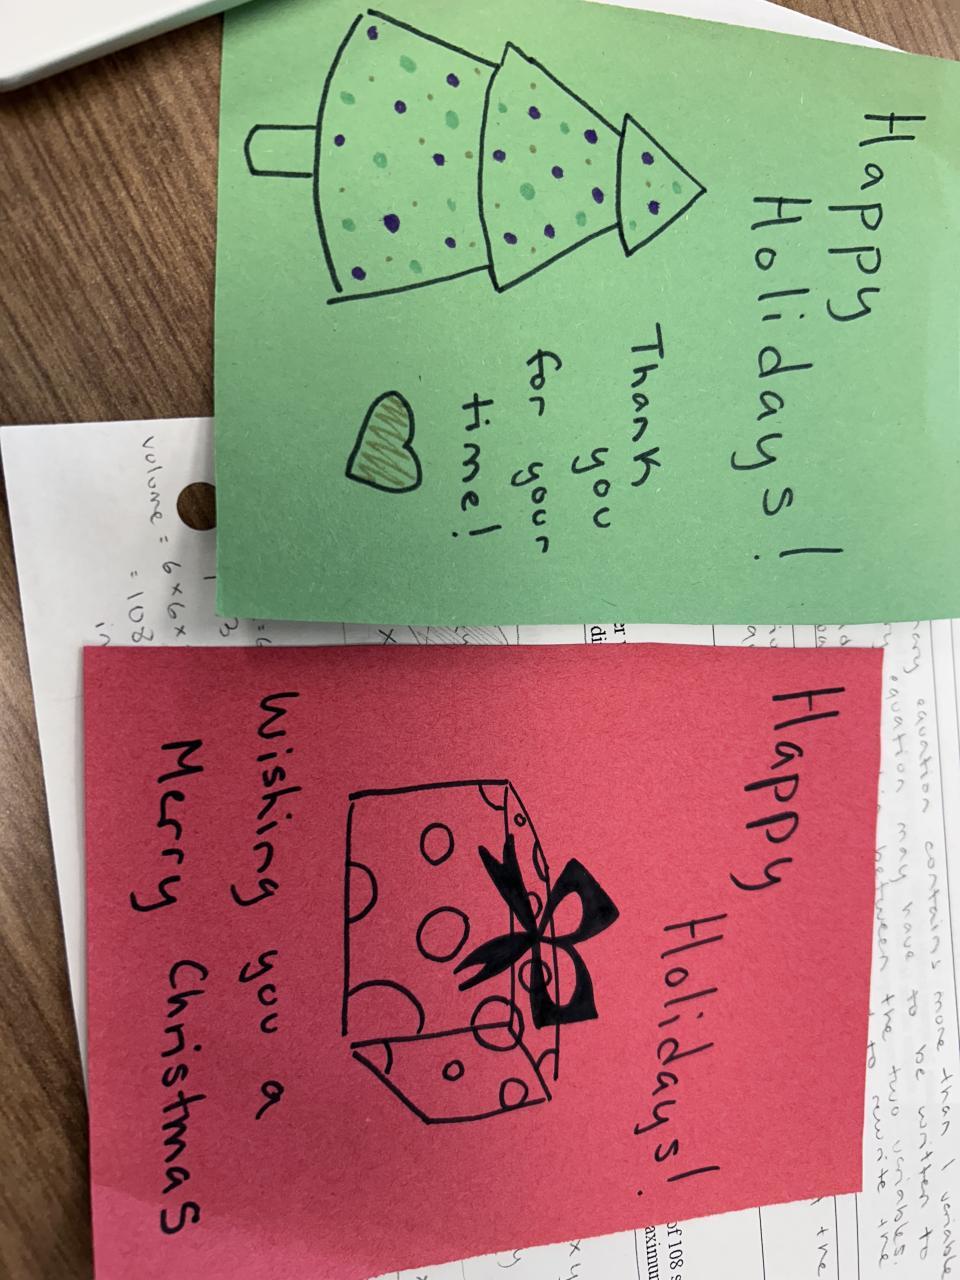 Happy
Holidays!
Thank
you
for your
time!
Happy
Holidays!
Wishing you a
Merry Christmas
volume = 6 x 6 x
= 108
equation contains more than 1 variable
equation may have to be written to
between the two variables.
to rewrite the
the
of 108